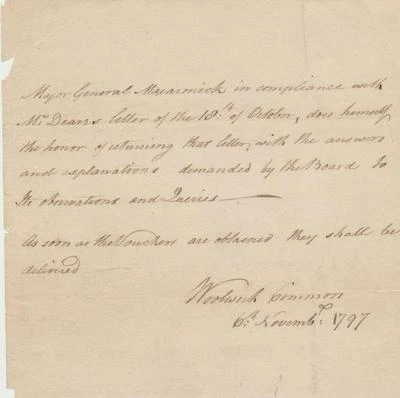 Major General Macarmick in compliance with
Mr Dears's letter of the 18th of October, does himself
the honor of returning that letter, with the answers
and explanations demanded by the Board to
Its observations and Queries
As soon as the Vouchers are obtained they shall be
delivered
Woolwich Common
6th Novembr 1797